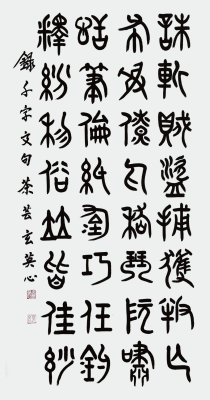 誅斬賊盜捕獲叛亡
布射僚丸嵇琴阮嘯
恬筆倫紙鈞巧任釣
釋紛利俗竝皆佳妙
錄千字文句 茶芸玄英心